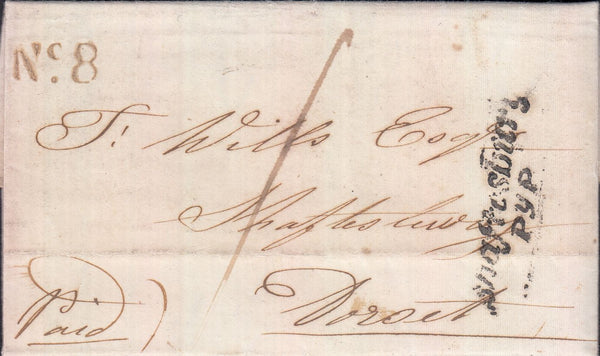 No. 8
T. Wills Esqr
Shaftesbury
Dorset
Paid
1
Shaftesbury
PyP